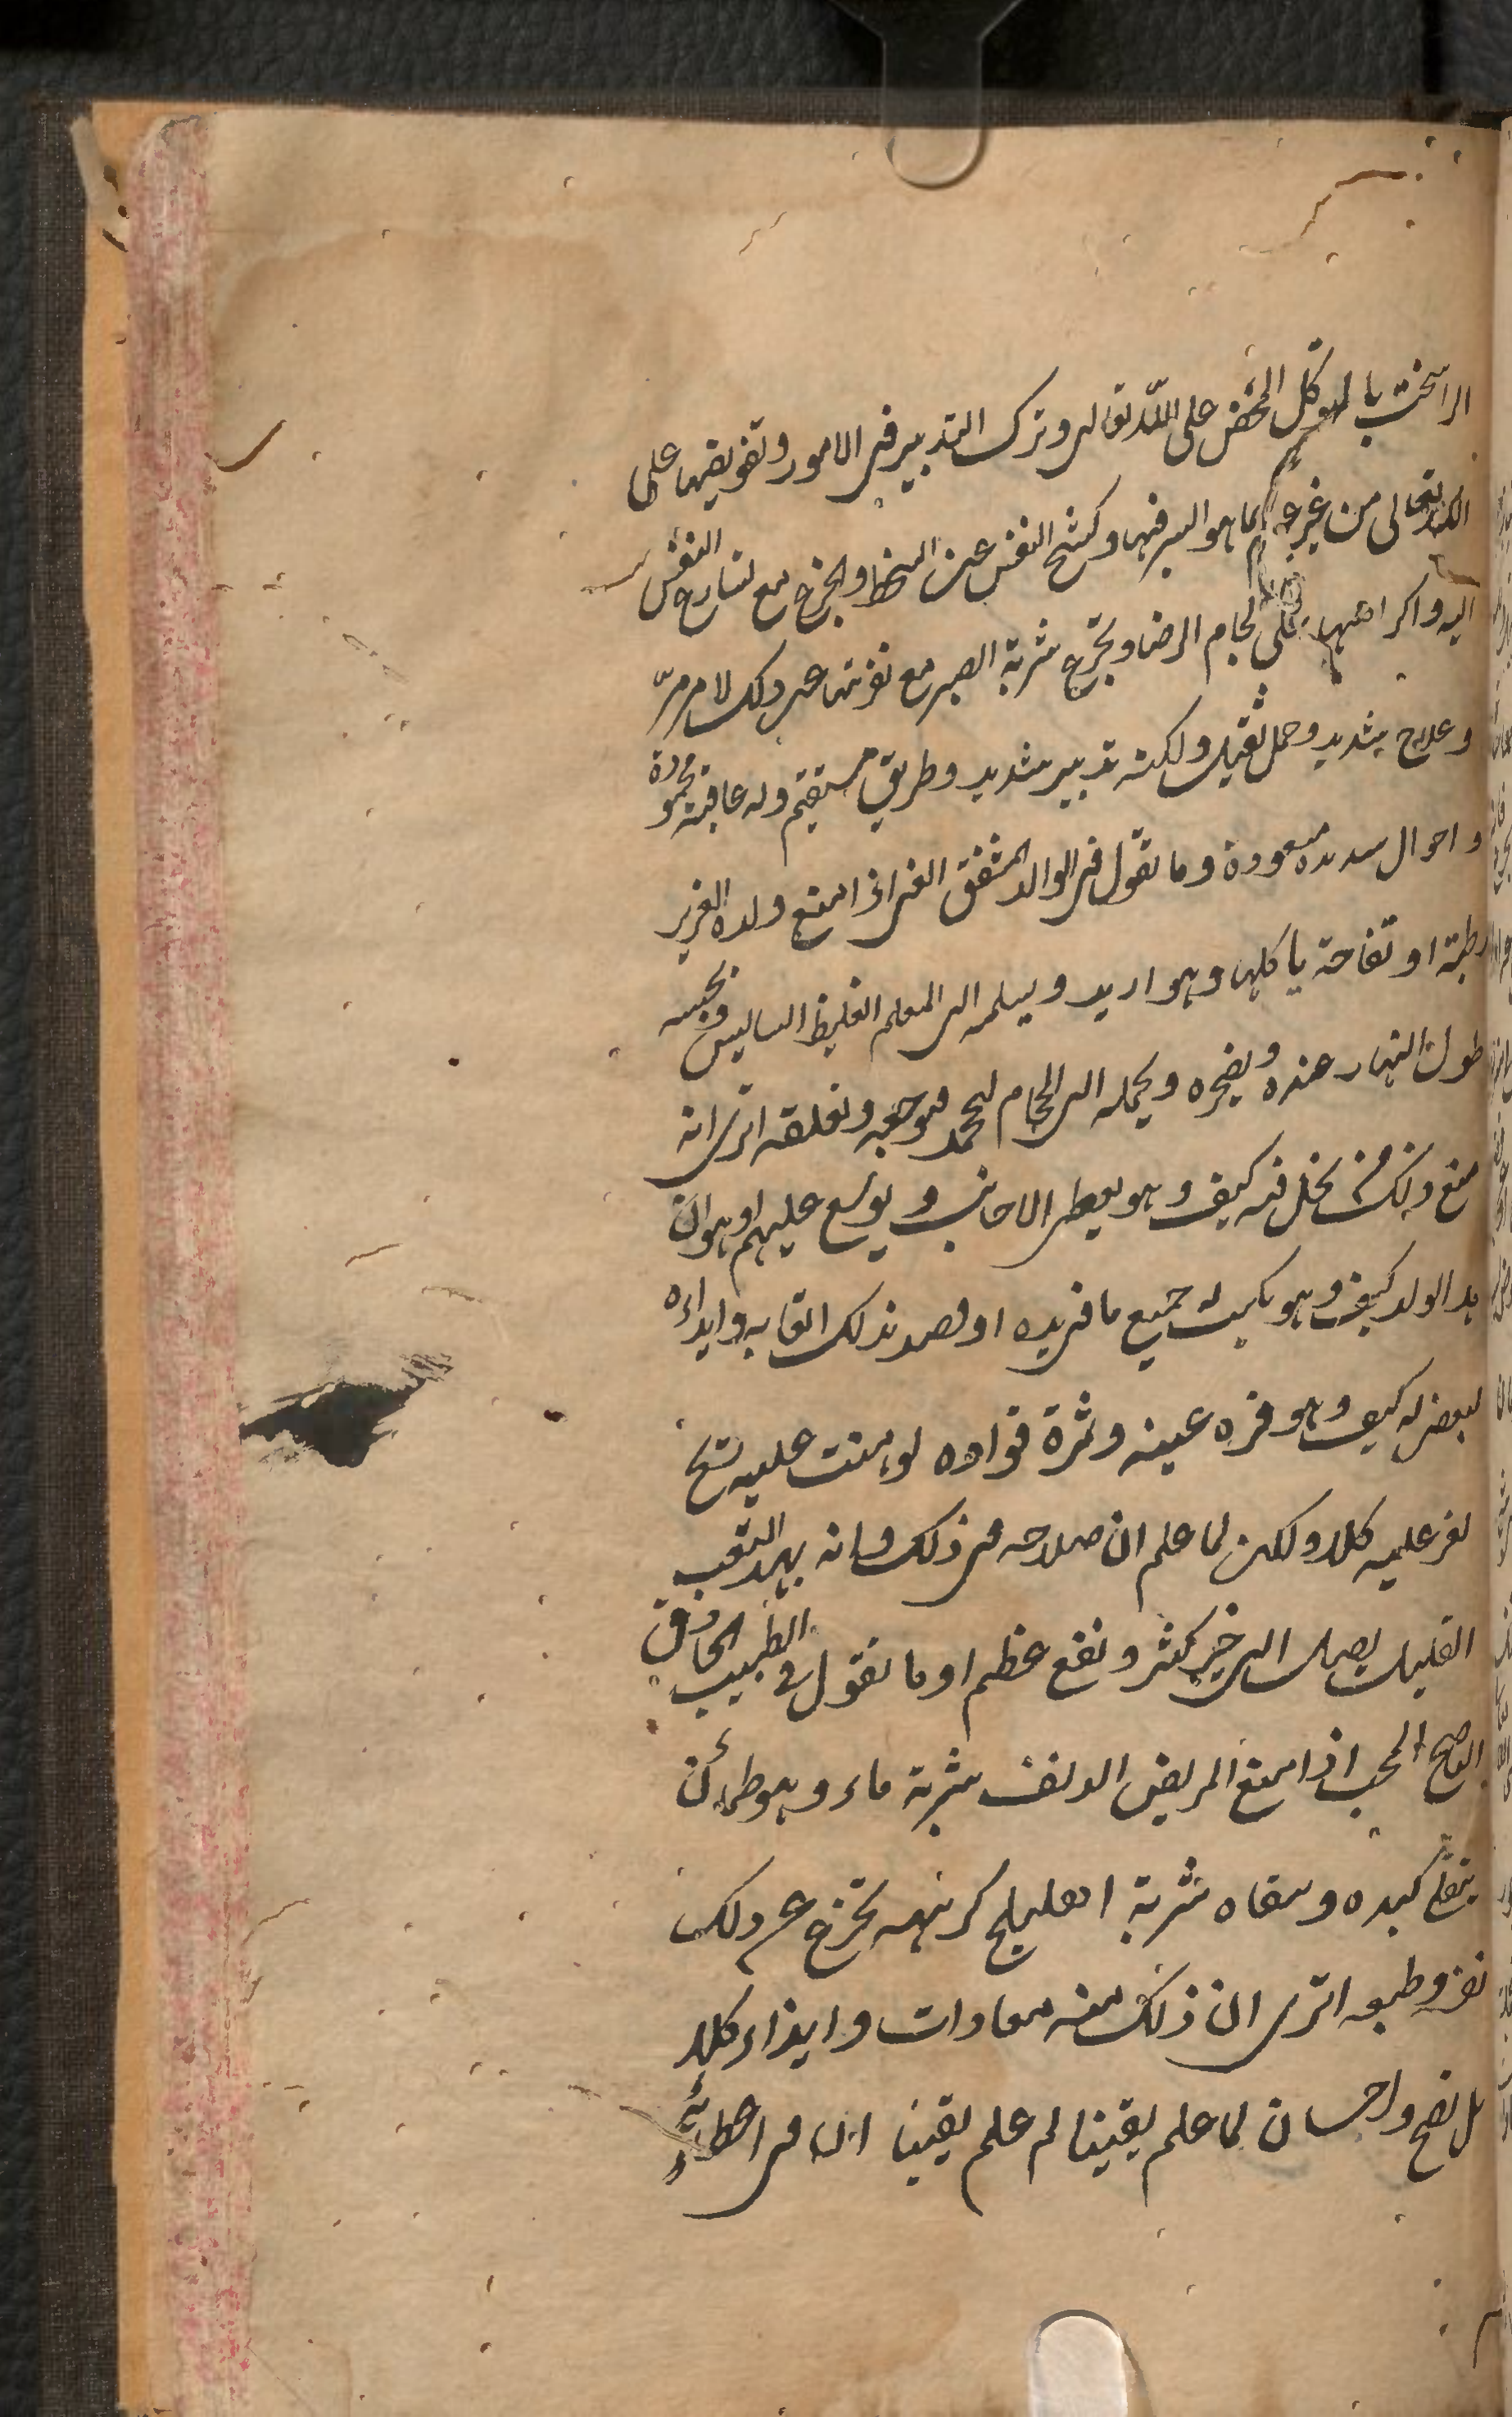 الراسخة بالتوكل المحض على الله تعالى وترك التدبير فى الامور وتفويضها على
الله تعالى من غير علم بما هو السر فيها وكشح النفس عن السخط والجزع مع تسارع النفس
اليه واكراهها على لجام الرضا وتجرع شربة الصبر مع نفرتها عن ذلك لامر مرّ
وعلاج شديد وحمل ثقيل ولكنه تدبير سديد وطريق مستقيم وله عاقبة محمودة
واحوال سديدة مسعودة وما تقول فى الوالد المشفق الغنى اذا منع ولده العزيز
رطبة او تفاحة ياكلها وهو ارمد ويسلمه الى المعلم الغليظ السايس ويحبسه
طول النهار عنده ويضجره ويحمله الى الحجام ليحجمه فيوجعه ويقلقه اترى انه
منع ذلك من بخل فيه كيف وهو يعطى الاجانب ويوسع عليهم او هوان
بدا الولد كيف وهو يكسب له جميع ما فى يده او قصد بذلك اتعابه وايذاءه
لبعض له كيف وهو قرة عينه وثمرة فواده لو هبت عليه ريح
لعز عليه كلا ولكن لما علم ان صلاحه فى ذلك وانه بهذا التعب
القليل يصل الى خير كثير ونفع عظيم او ما تقول فى الطبيب الحاذق
الناصح المحب اذا منع المريض الدنف شربة ماء وهو ظمأن
يتقلى كبده وسقاه شربة اهليلج كريهة تجزع عن ذلك
نفسه وطبعه اترى ان ذلك منه معادات وايذاء كلا
بل نصح واحسان لما علم يقينا لم علم يقينا ان فى اعطائه